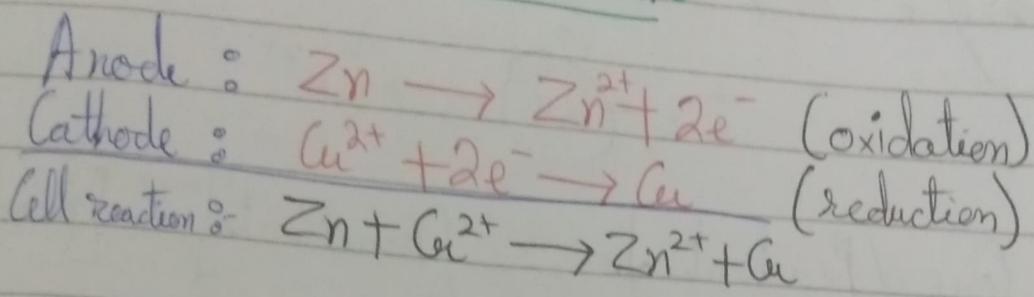 Anode : Zn → Zn²⁺ + 2e⁻ (oxidation)
Cathode : Cu²⁺ + 2e⁻ → Cu (reduction)
Cell reaction :- Zn + Cu²⁺ → Zn²⁺ + Cu